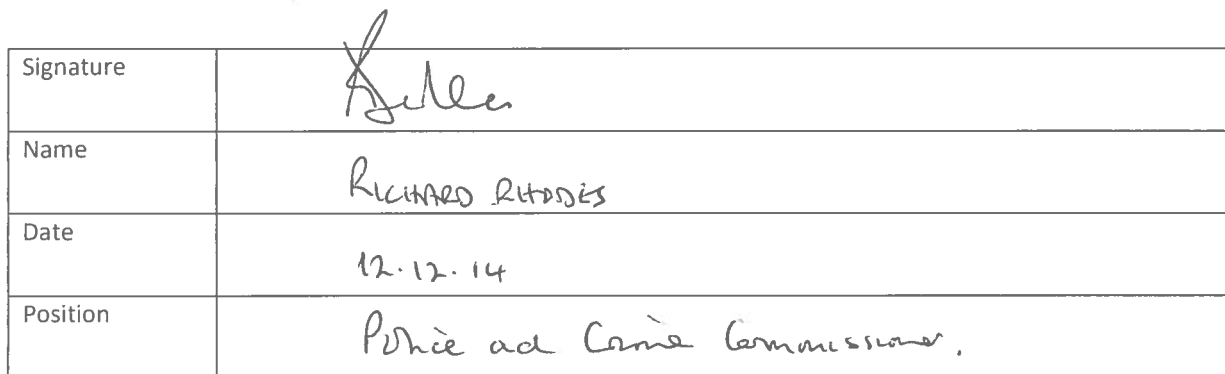 Signature
Name RICHARD RHODES
Date 12.12.14
Position Police and Crime Commissioner.